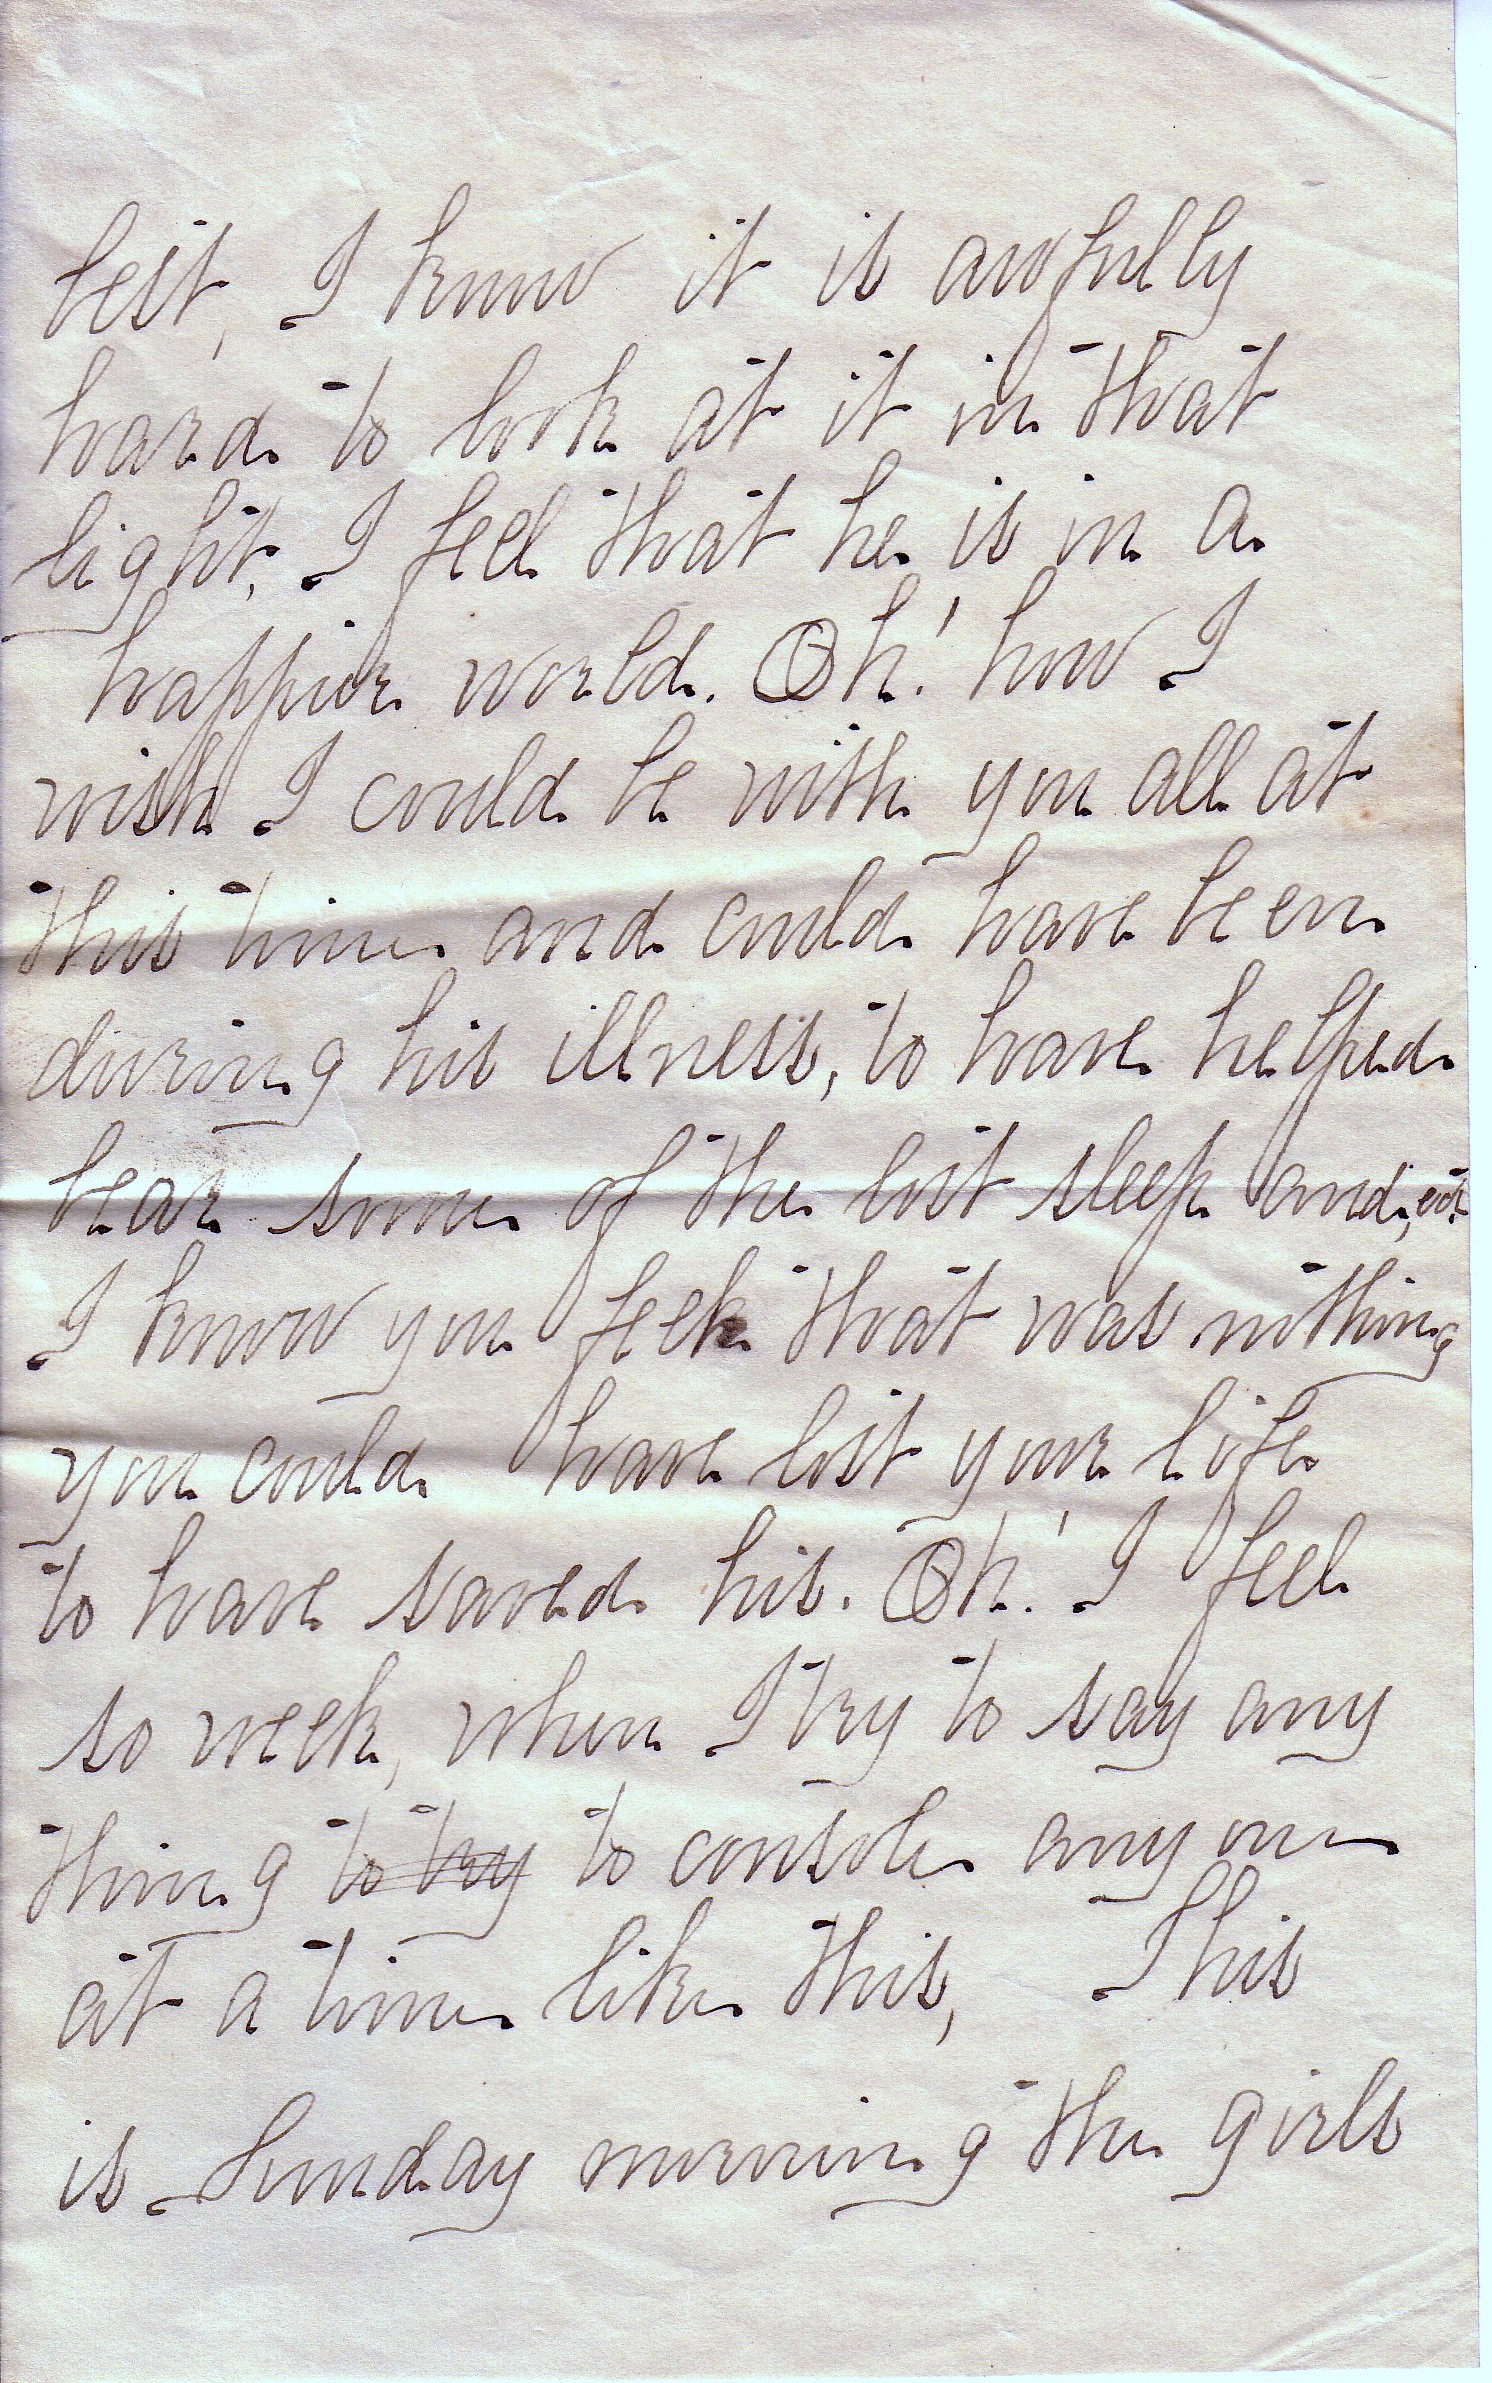 best, I know it is awfully
hard to look at it in that
light, I feel that he is in a
happier world. Oh! how I
wish I could be with you all at
this time and could have been
during his illness, to have helped
bear some of the lost sleep and, ect.
I know you feel that was nothing
you could have lost your life
to have saved his. Oh! I feel
so week, when I try to say any
thing to try to console any one
at a time like this, This
is Sunday morning the girls